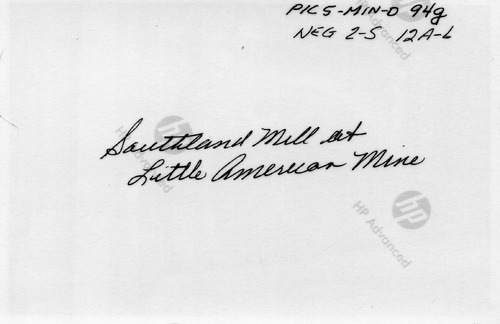 PICS-MIN-D 94g
NEG 2-S 12A-L
Southland Mill at
Little American Mine
hp
HP Advanced
hp
HP Advanced